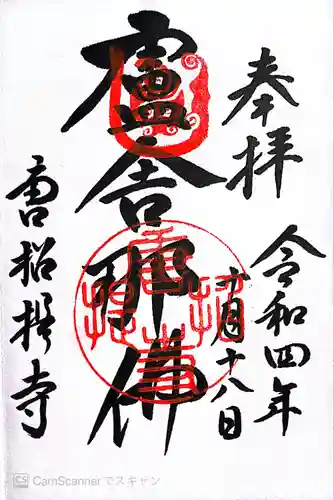 奉拝
令和四年
十月十八日
盧舎那佛
唐招提寺
唐招提寺
CS CamScannerでスキャン